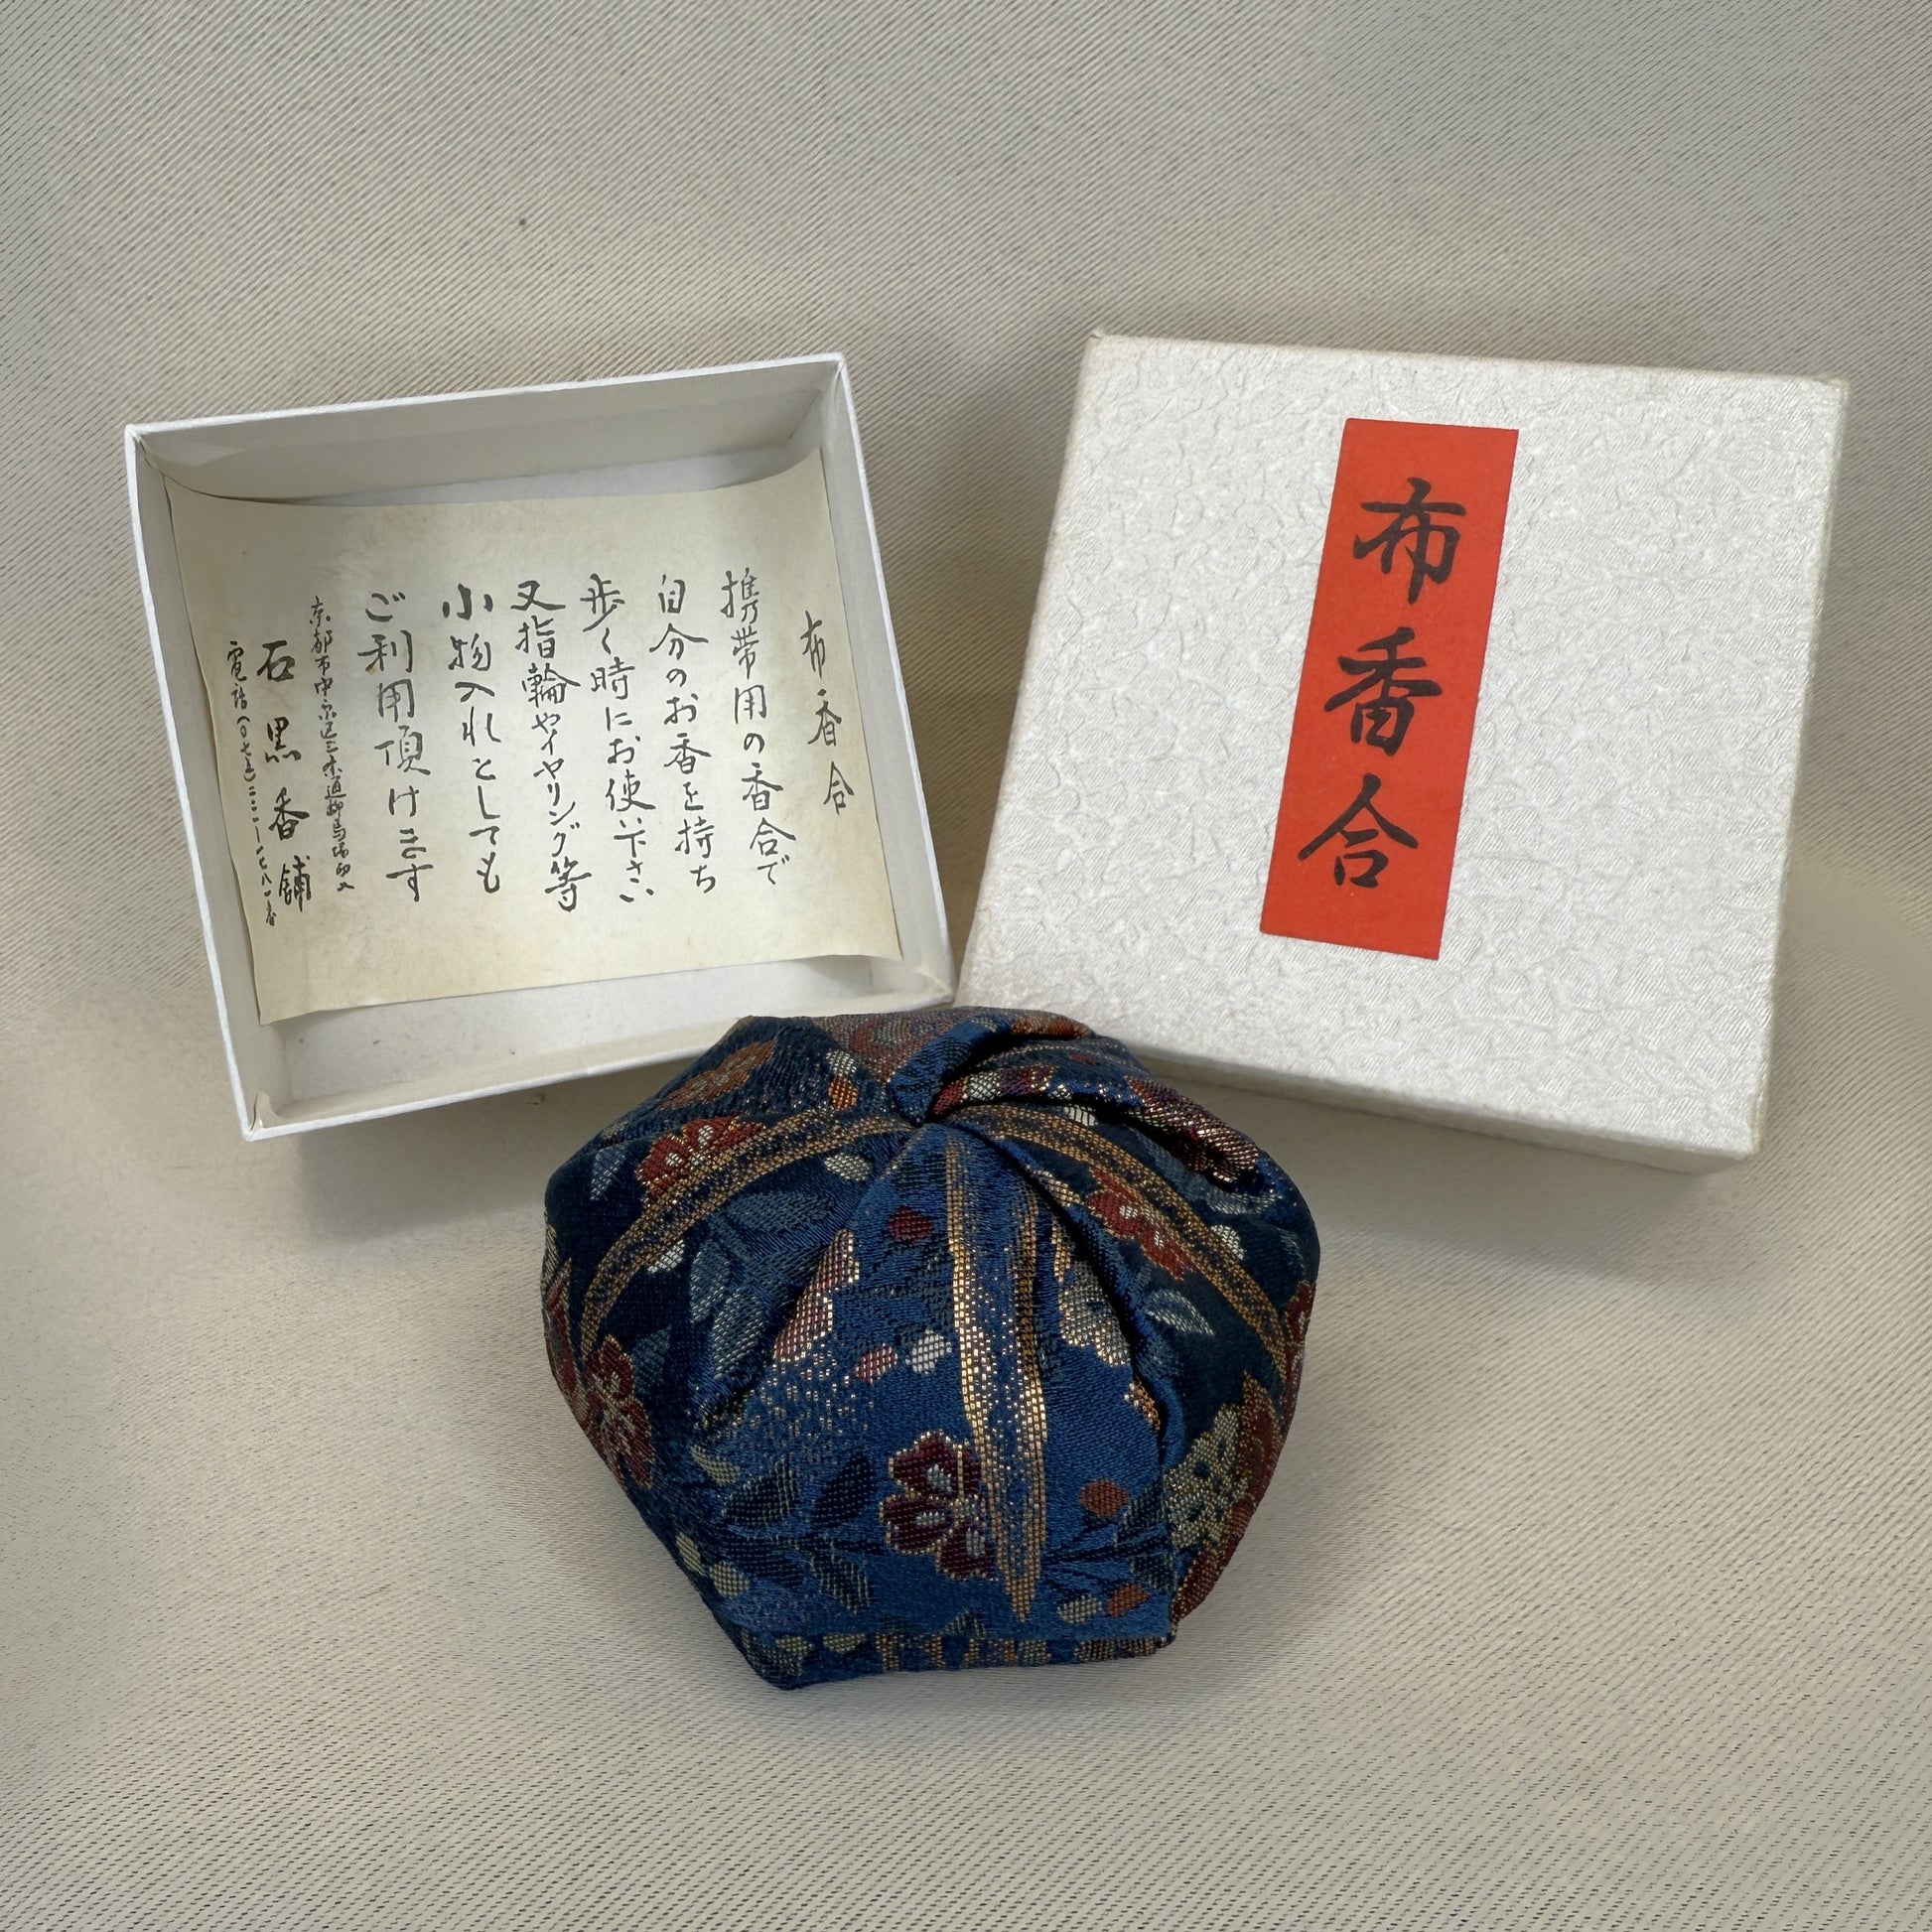 布香合
携帯用の香合で
自分のお香を持ち
歩く時にお使い下さい
又指輪やイヤリング等
小物入れとしても
ご利用頂けます
京都市中京区三条通柳馬場西入
石黒香舗
電話(〇七五)二二一一七八一番
布香合